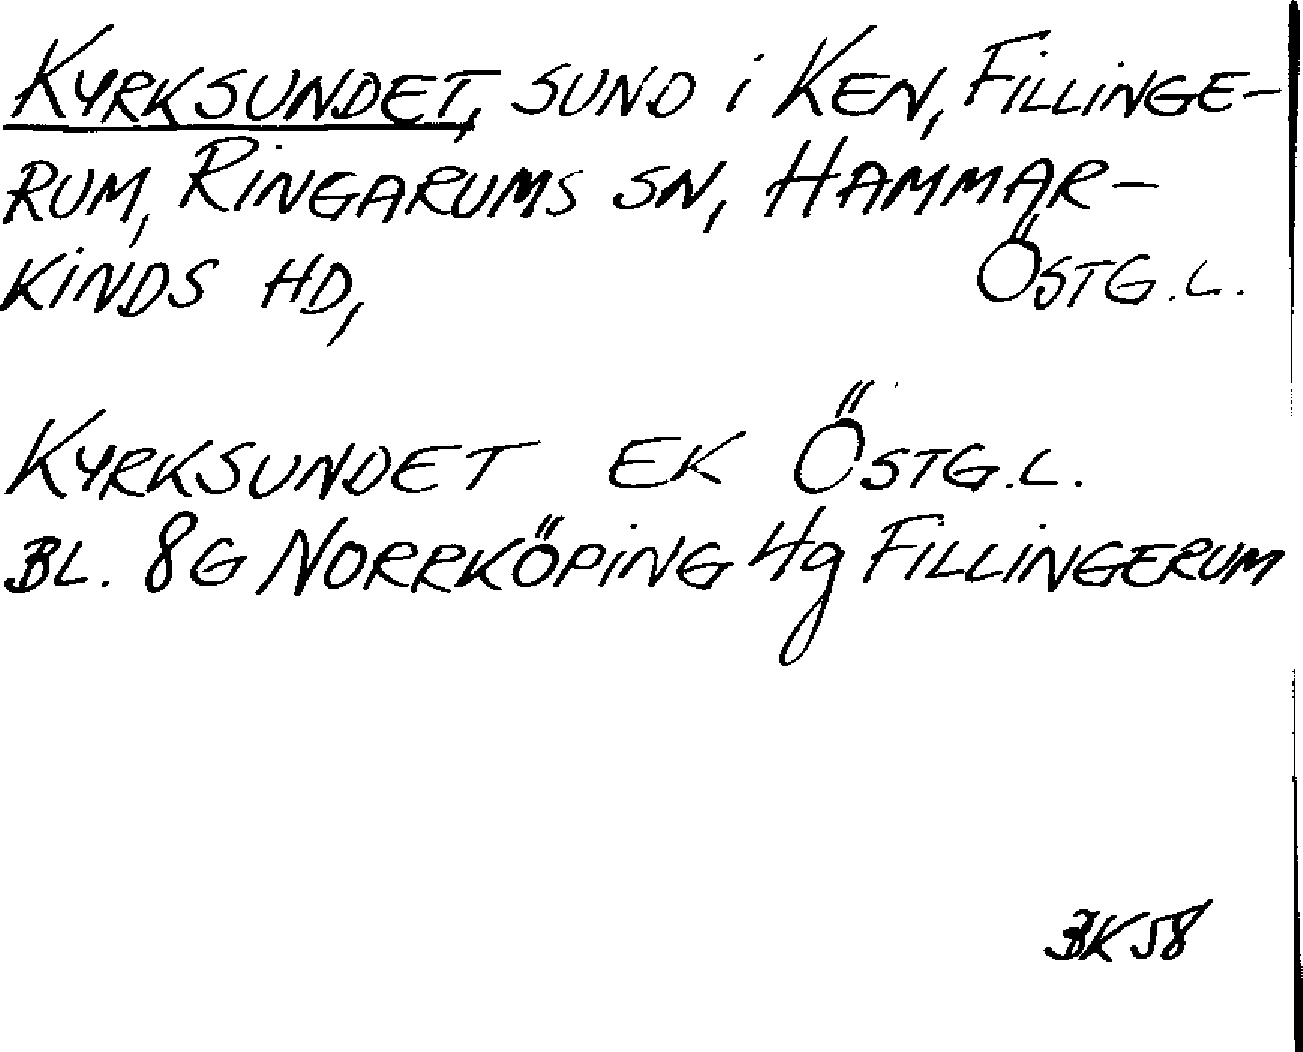 KYRKSUNDET, SUND i KEN, FILLINGE-
RUM, RINGARUMS SN, HAMMAR-
KINDS HD, ÖSTG.L.
KYRKSUNDET EK ÖSTG.L.
BL. 8G NORRKÖPING 4g FILLINGERUM
BK 58